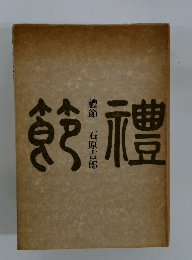 禮節
禮節 石原吉郎